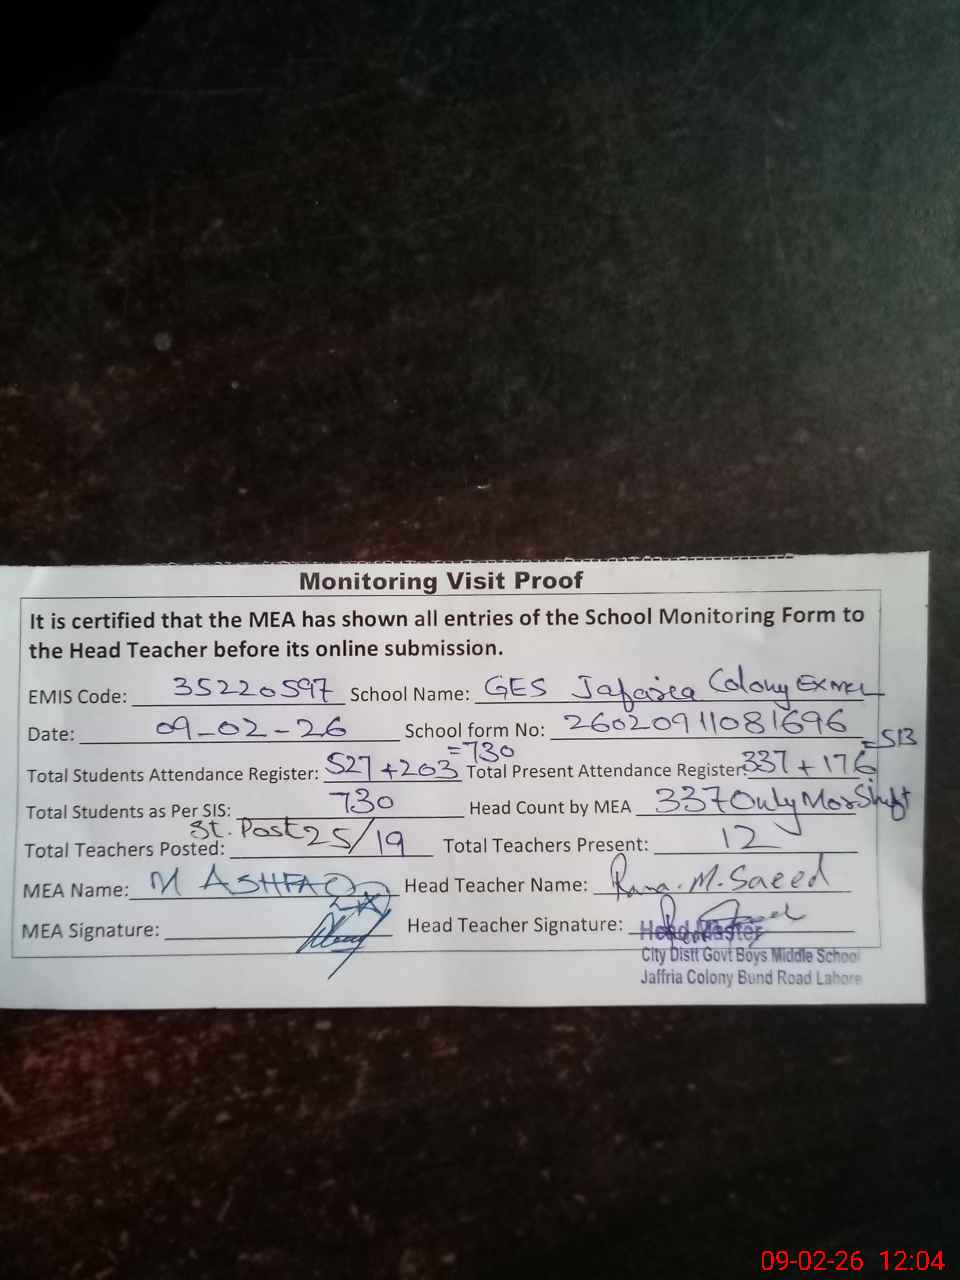 Monitoring Visit Proof
It is certified that the MEA has shown all entries of the School Monitoring Form to
the Head Teacher before its online submission.
EMIS Code: 35220597 School Name: GES Jafaria Colony Ex MCL
Date: 09-02-26 School form No: 26020911081696
Total Students Attendance Register: 527+203 =730 Total Present Attendance Register: 337+176 =513
Total Students as Per SIS: 730 Head Count by MEA 337 Only Mor Shift
Total Teachers Posted: St. Post 25/19 Total Teachers Present: 12
MEA Name: M ASHFAQ Head Teacher Name: Rana. M. Saeed
MEA Signature: Head Teacher Signature:
Head Master
City Distt Govt Boys Middle School
Jaffria Colony Bund Road Lahore
09-02-26 12:04